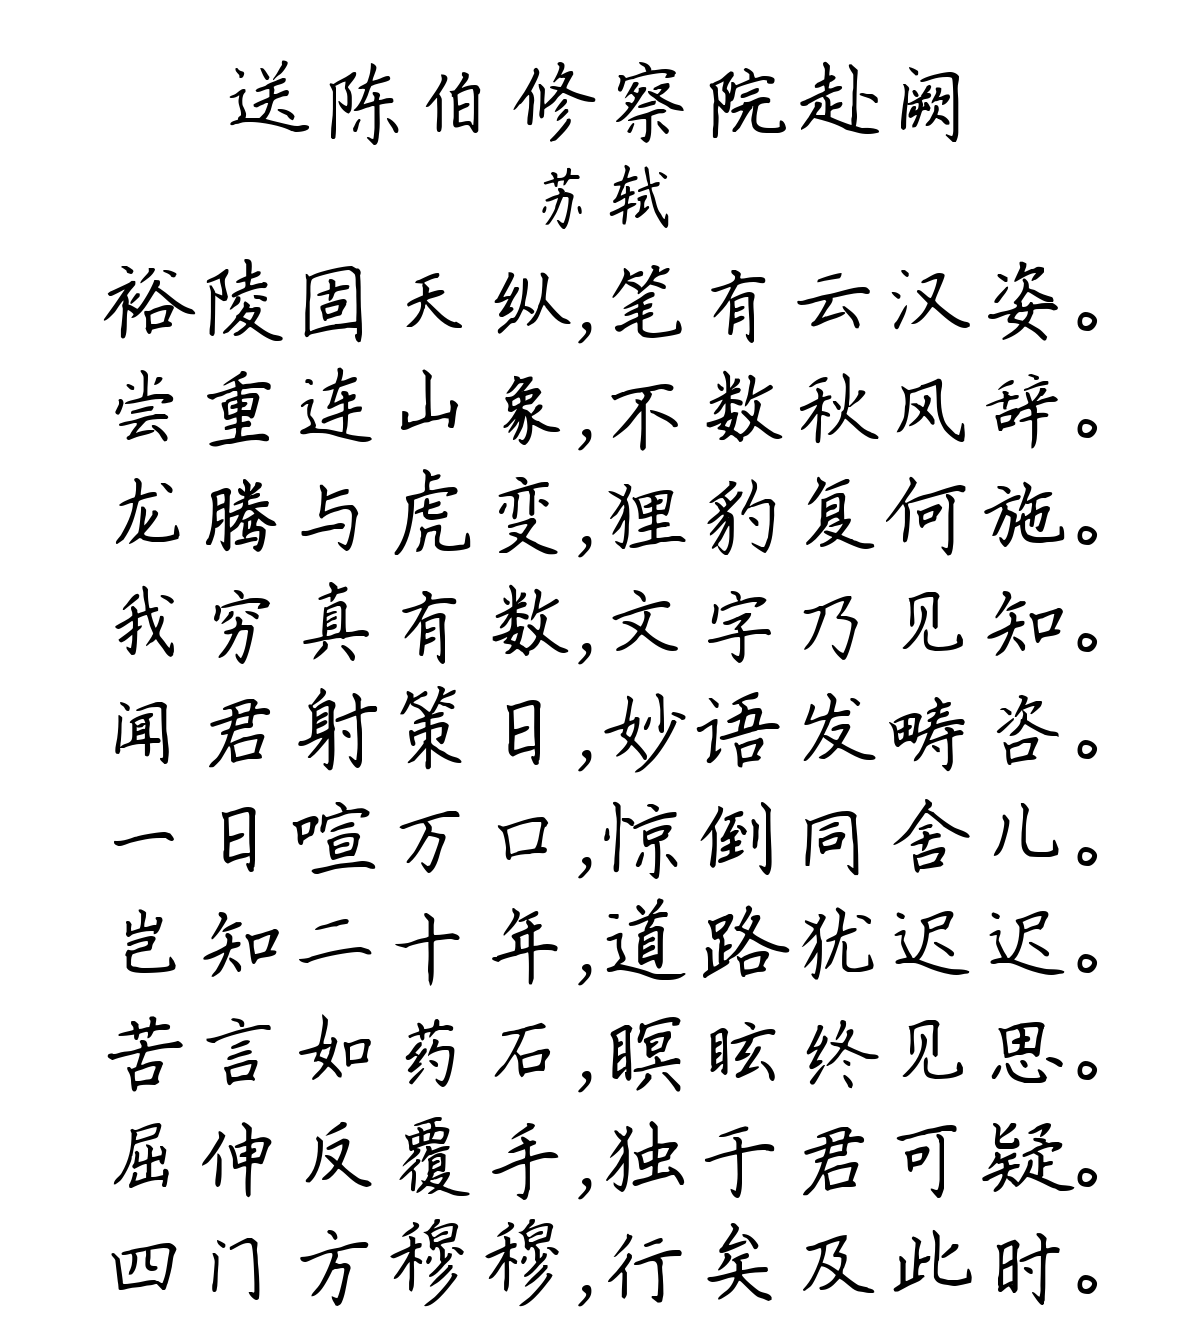 送陈伯修察院赴阙
苏轼
裕陵固天纵,笔有云汉姿。
尝重连山象,不数秋风辞。
龙腾与虎变,狸豹复何施。
我穷真有数,文字乃见知。
闻君射策日,妙语发畴咨。
一日喧万口,惊倒同舍儿。
岂知二十年,道路犹迟迟。
苦言如药石,瞑眩终见思。
屈伸反覆手,独于君可疑。
四门方穆穆,行矣及此时。